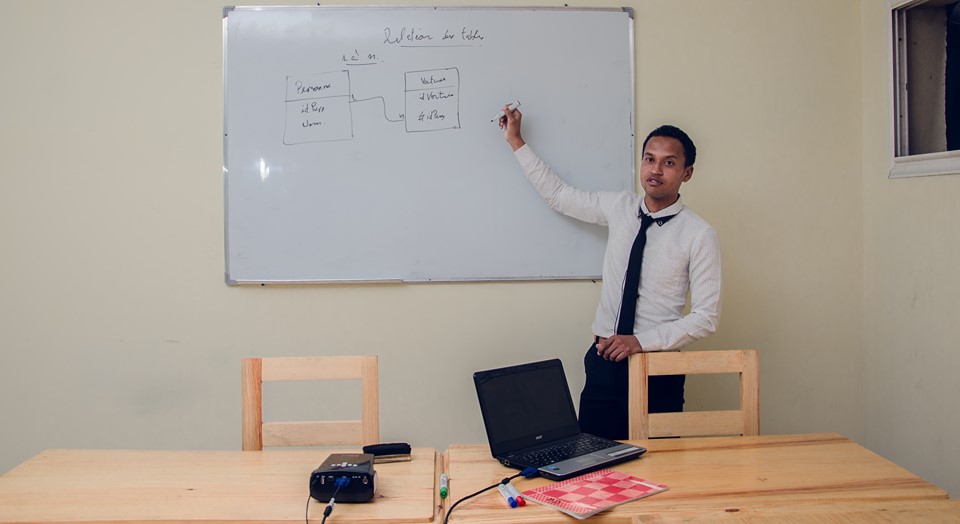 Relation des tables
1 à n
Personne
idPers
Nom
1
n
Voiture
idVoiture
#idPers
acer